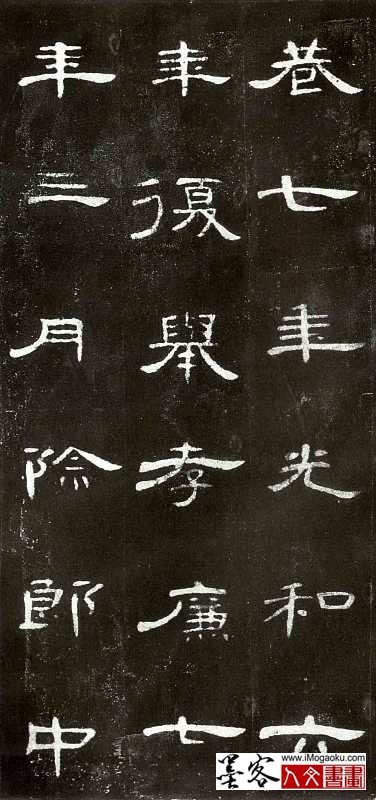 巷七年光和六
年復舉孝廉七
年三月除郎中
墨客
www.iMogaoku.com
人文書畫